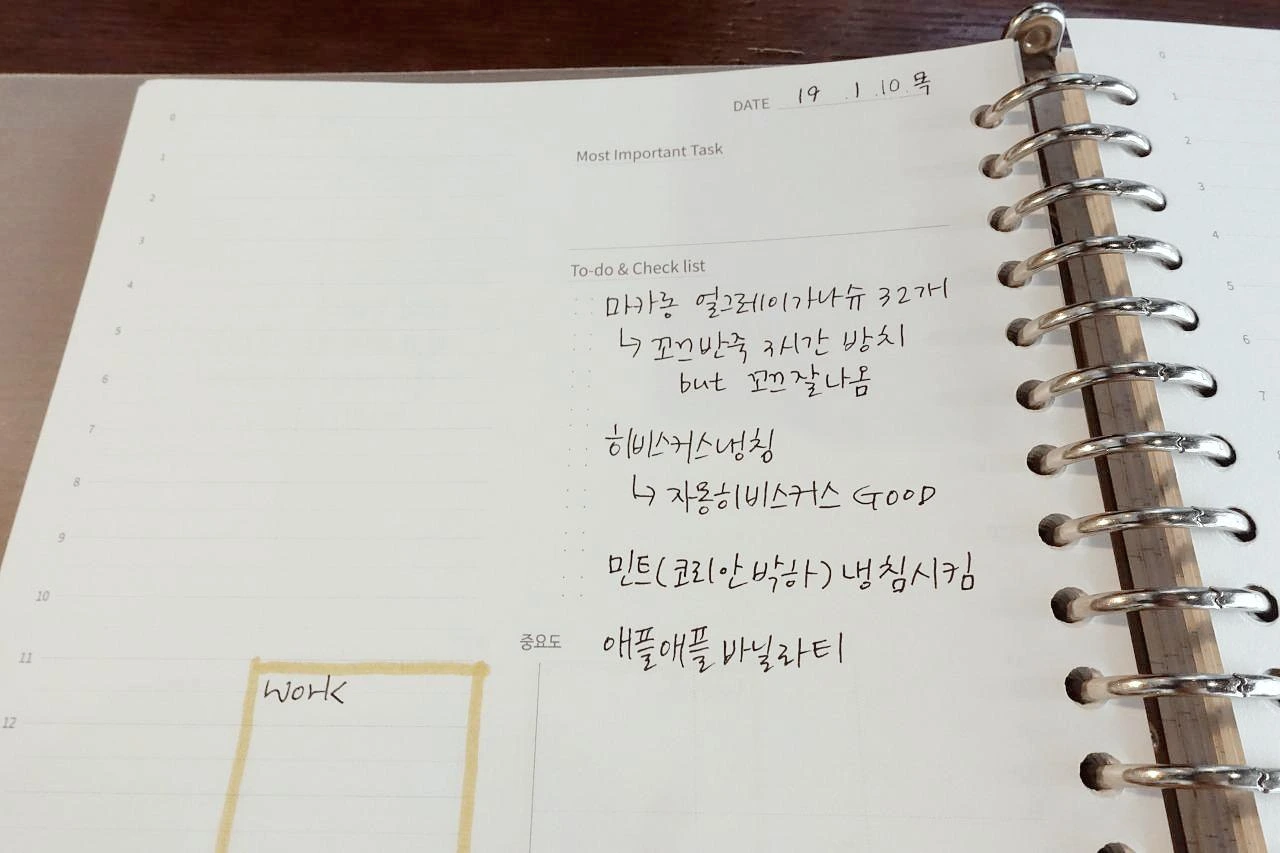 DATE 19 . 1 . 10. 목
Most Important Task
To-do & Check list
마카롱 얼그레이가나슈 32개
↳ 꼬끄반죽 3시간 방치
but 꼬끄잘나옴
히비스커스냉침
↳ 자몽히비스커스 GOOD
민트(코리안박하) 냉침시킴
중요도
애플애플바닐라티
0
1
2
3
4
5
6
7
8
9
10
11
12
work
0
1
2
3
4
5
6
7